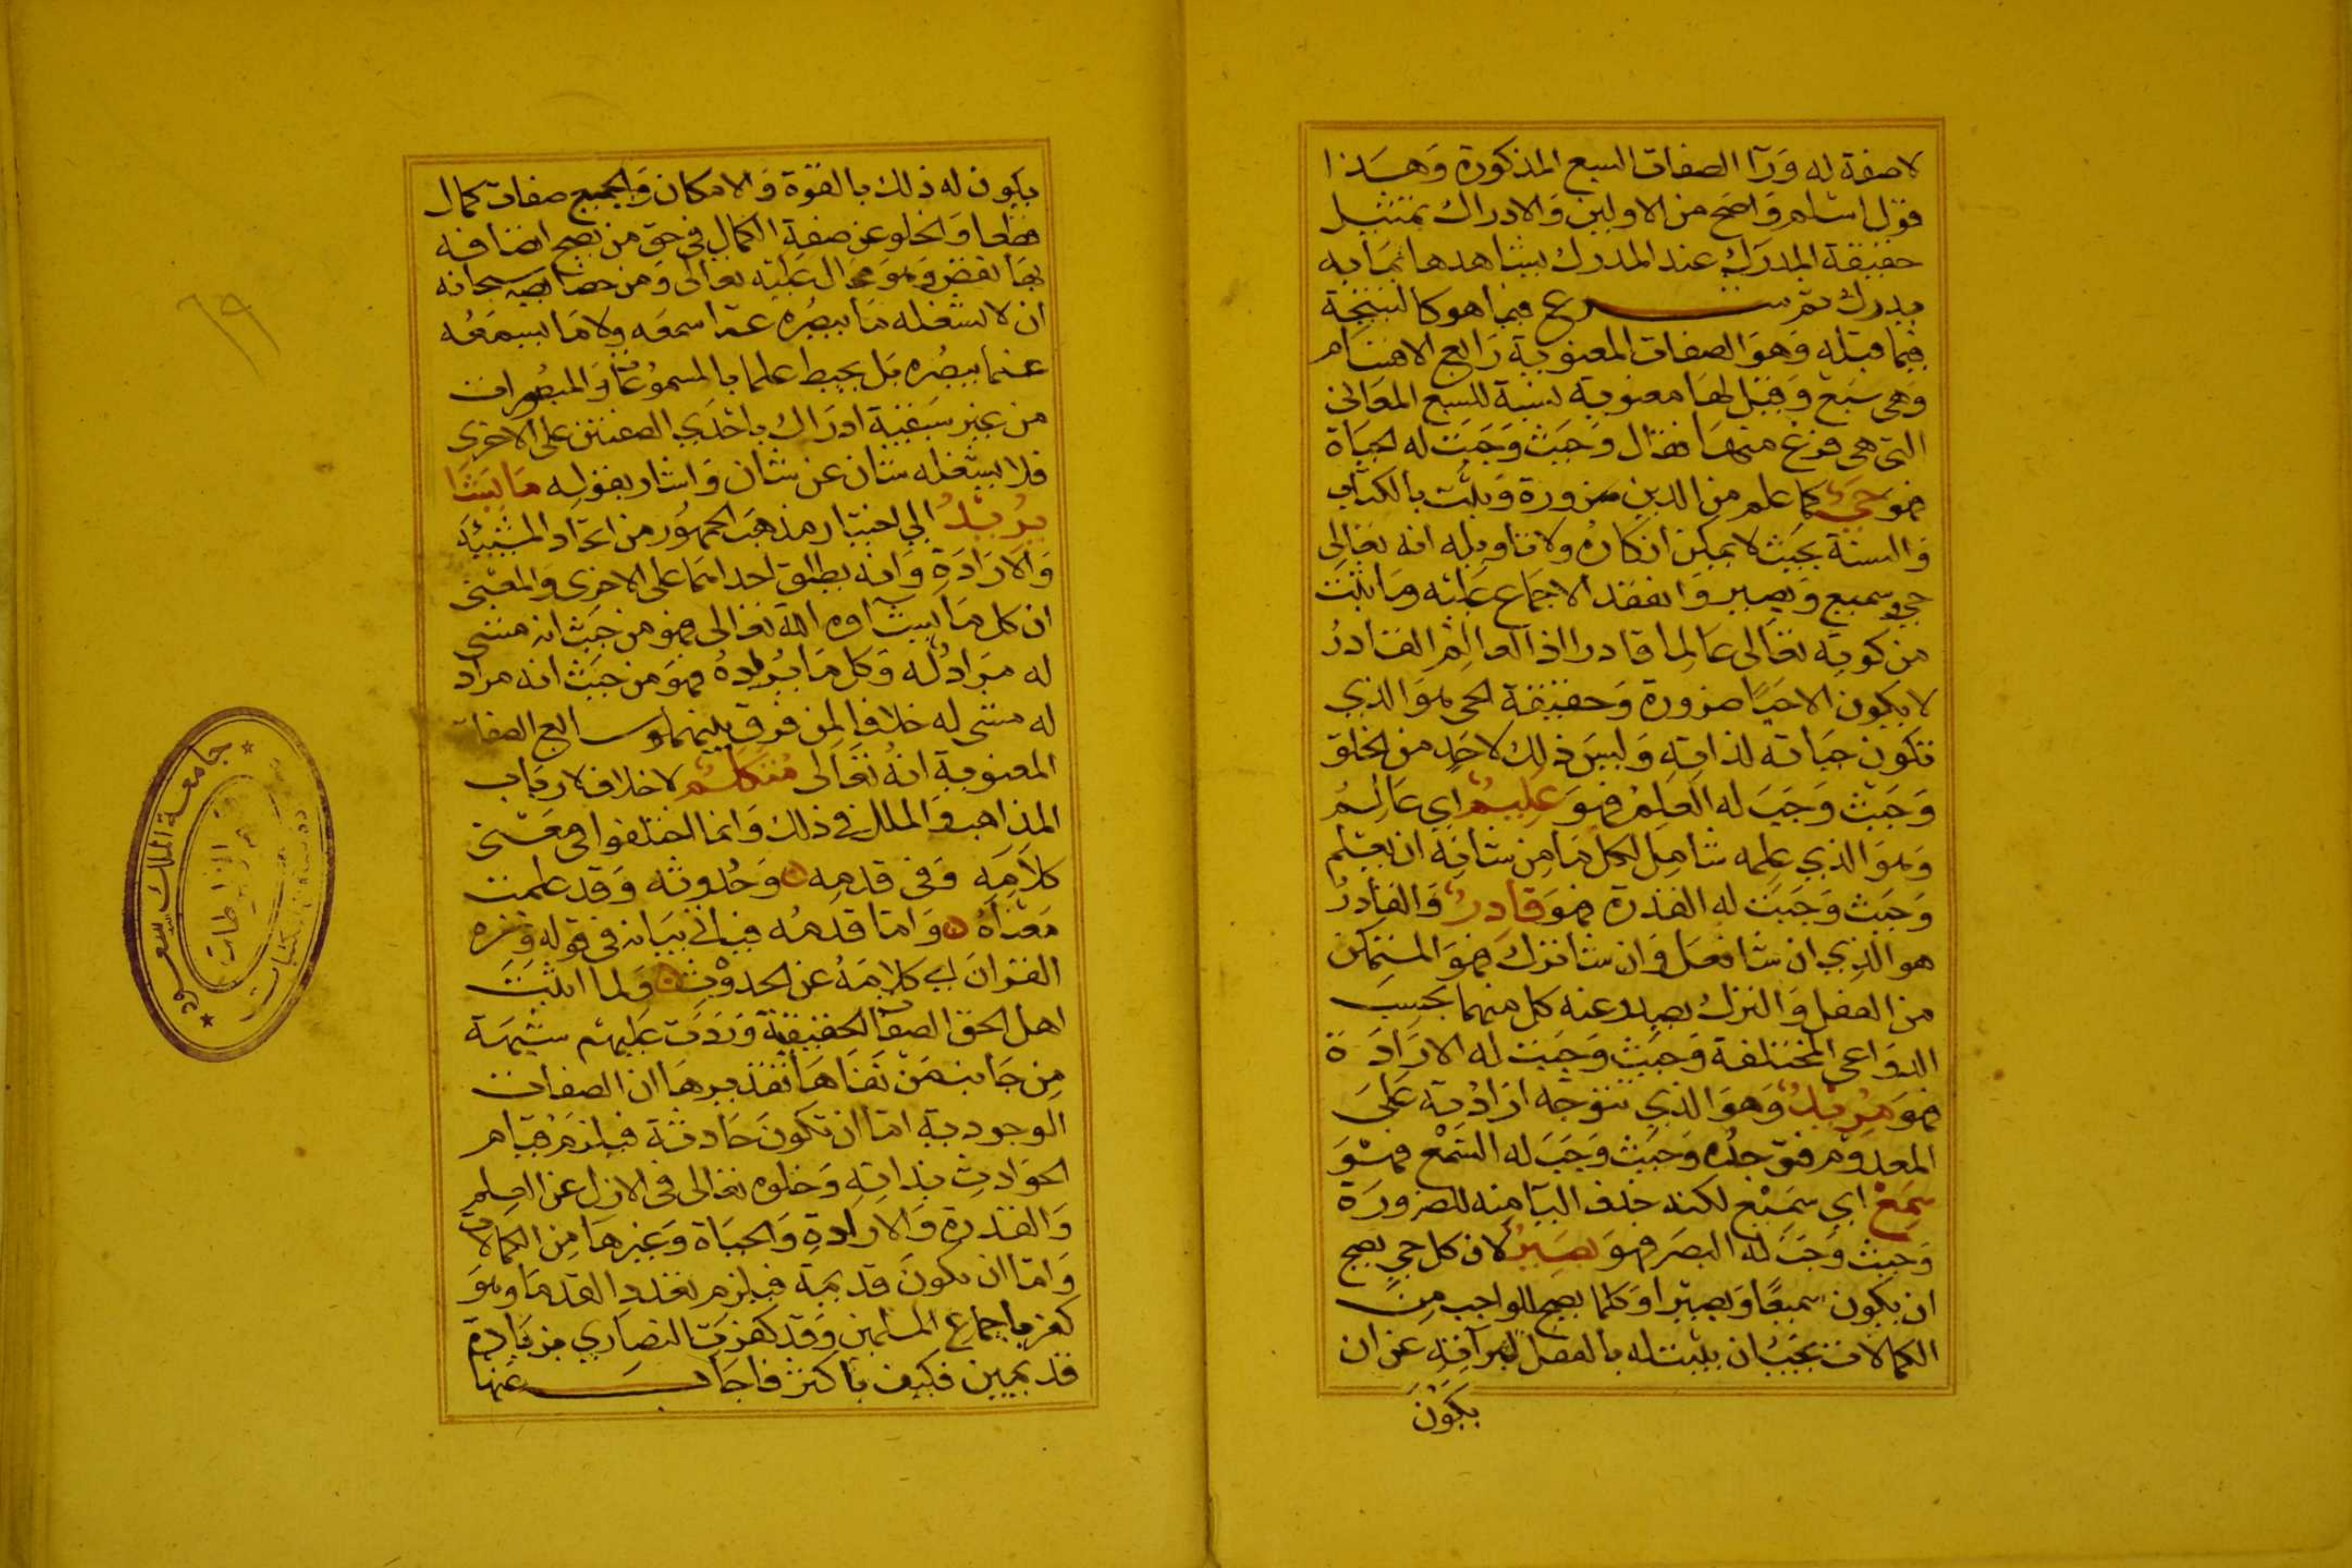 لا صفة له ورآ الصفات السبع المذكورة وهذا
قول اسلم واضح من الاولين والادراك تمثيل
حقيقة المدرك عند المدرك يشاهدها بما به
يدرك ثم شرع فيما هو كالنتيجة
فيما قبله وهو الصفات المعنوية رابع الاقسام
وهي سبع وقيل لها معنوية نسبة للسبع المعاني
التي هي فرع منها فقال وحيث وجبت له الحياة
فهو حي كما علم من الدين ضرورة وثبت بالكتاب
والسنة بحيث لا يمكن انكاره ولا تاويله انه تعالى
حي سميع وبصير وانعقد الاجماع عليه وما ثبت
من كونه تعالى عالما قادرا اذ العالم القادر
لا يكون الا حيا ضرورة وحقيقة الحي هو الذي
تكون حياته لذاته وليس ذلك لاحد من الخلق
وحيث وجب له العلم فهو عليم اي عالم
وهو الذي علمه شامل لكل ما من شانه ان يعلم
وحيث وجبت له القدرة فهو قادر والقادر
هو الذي ان شا فعل وان شا ترك فهو المتمكن
من الفعل والترك يصدر عنه كل منهما بحسب
الدواعي المختلفة وحيث وجبت له الارادة
فهو مريد وهو الذي تتوجه ارادته على
المعدوم فتوجده وحيث وجب له السمع فهو
سمع اي سميع لكنه حذف اليآ منه للضرورة
وحيث وجب له البصر فهو بصير لان كل حي يصح
ان يكون سميعا وبصيرا وكلما يصح للواجب من
الكمالات يجب ان يثبت له بالفعل لبرآته عن ان
يكون
يكون له ذلك بالقوة والامكان والجميع صفات كمال
قطعا والخلو عن صفة الكمال في حق من يصح اتصافه
بها نقض وهو محال عليه تعالى ومن خصايصه سبحانه
ان لا يشغله ما يبصره عما سمعه ولا ما يسمعه
عما يبصره بل يحيط علما بالمسموعات والمبصرات
من غير سبقية ادراك باحدي الصفتين على الاخرى
فلا يشغله شان عن شان واشار بقوله ما يشا
يريد الي اختيار مذهب الجمهور من اتحاد المشيئة
والارادة وانه يطلق احداهما على الاخرى والمعنى
ان كل ما يشآوه الله تعالى فهو من حيث انه مشى
له مراد له وكل ما يريده فهو من حيث انه مراد
له مشى له خلافا لمن فرق بينهما وسابع الصفات
المعنوية انه تعالى متكلم لا خلاف لارباب
المذاهب والملل في ذلك وانما اختلفوا في معنى
كلامه وفي قدمه وحدوثه وقد علمت
معناه واما قدمه فياتي بيانه في قوله ونزه
القران اي كلامه عن الحدوث ولما اثبت
اهل الحق الصفات الحقيقية وردت عليهم شبهة
من جانب من نفاها تقديرها ان الصفات
الوجودية اما ان تكون حادثة فيلزم قيام
الحوادث بذاته وخلوه تعالى في الازل عن العلم
والقدرة والارادة والحياة وغيرها من الكمالات
واما ان تكون قديمة فيلزم تعدد القدما وهو
كفر باجماع المسلمين وقد كفرت النصاري بزيادة
قديمين فكيف باكثر فاجاب عنها
جامعة الملك سعود